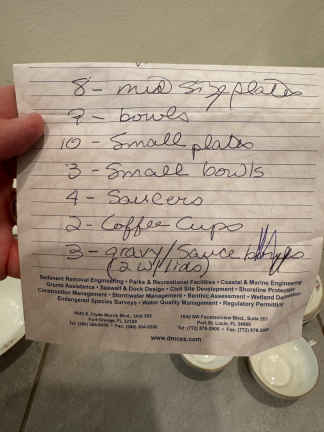 8 - mid size plates
7 - bowls
10 - Small plates
3 - Small bowls
4 - Saucers
2 - Coffee Cups
3 - gravy/Sauce
(2 w/lids)
Sediment Removal Engineering • Parks & Recreational Facilities • Coastal & Marine Engineering
Grants Assistance • Seawall & Dock Design • Civil Site Development • Shoreline Protection
Construction Management • Stormwater Management • Benthic Assessment • Wetland
Endangered Species Surveys • Water Quality Management • Regulatory Permitting
Port Orange, FL 32129
Port St. Lucie, FL
www.dmces.com